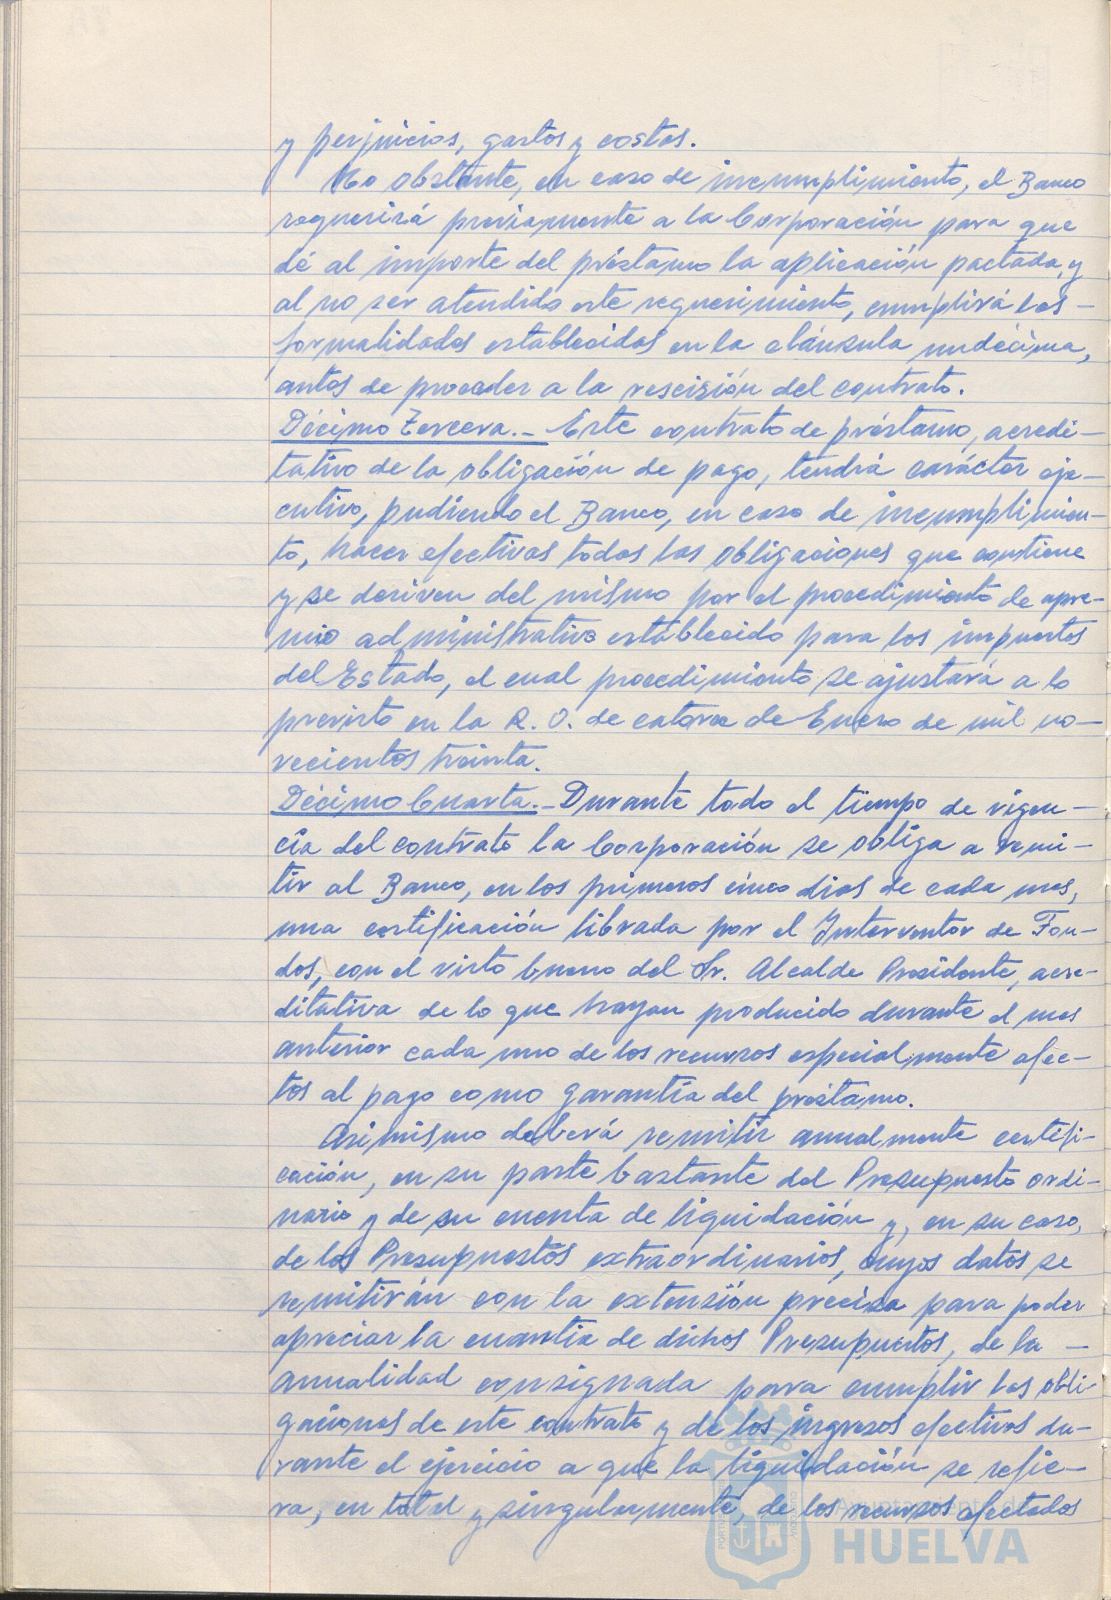 y perjuicios, gastos y costes.
No obstante, en caso de incumplimiento, el Banco
requerirá previamente a la Corporación para que
dé al importe del préstamo la aplicación pactada, y
al no ser atendido este requerimiento, cumplirá las-
formalidades establecidas en la cláusula undécima,
antes de proceder a la rescisión del contrato.
Décimo Tercera.- Este contrato de préstamo, acredi-
tativo de la obligación de pago, tendrá carácter eje-
cutivo, pudiendo el Banco, en caso de incumplimien-
to, hacer efectivas todas las obligaciones que contiene
y se deriven del mismo por el procedimiento de apre-
mio administrativo establecido para los impuestos
del Estado, el cual procedimiento se ajustará a lo
previsto en la R. O. de catorce de Enero de mil no-
vecientos treinta.
Décimo Cuarta.- Durante todo el tiempo de vigen-
cia del contrato la Corporación se obliga a remi-
tir al Banco, en los primeros cinco dias de cada mes,
una certificación librada por el Interventor de Fon-
dos, con el visto bueno del Sr. Alcalde Presidente, acre-
ditativa de lo que hayan producido durante el mes
anterior cada uno de los recursos especialmente afec-
tos al pago como garantía del préstamo.
Asimismo deberá remitir anualmente certifi-
cación, en su parte bastante del Presupuesto ordi-
nario y de su cuenta de liquidación y, en su caso,
de los Presupuestos extraordinarios, cuyos datos se
remitirán con la extensión precisa para poder
apreciar la cuantía de dichos Presupuestos, de la -
anualidad consignada para cumplir las obli-
gaciones de este contrato y de los ingresos efectivos du-
rante el ejercicio a que la liquidación se refie-
ra, en total y singularmente, de los recursos afectados
Ayuntamiento de
HUELVA